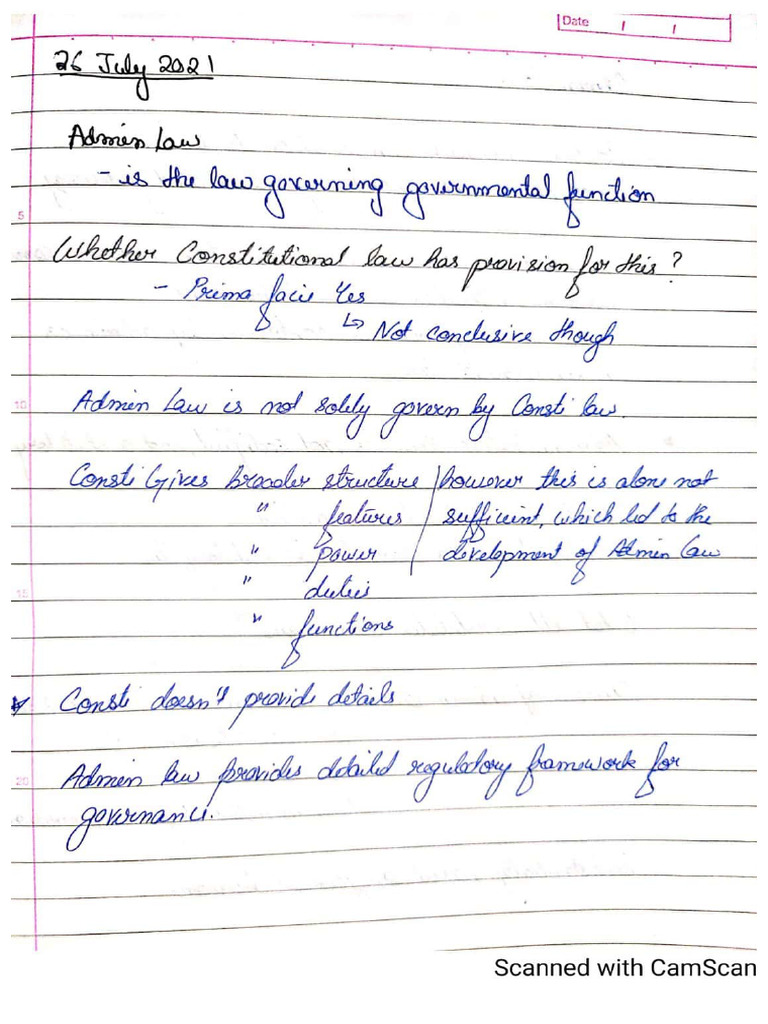 Date / /
26 July 2021
Admin Law
- is the law governing governmental function
5
Whether Constitutional law has provision for this?
- Prima facie Yes
↳ Not conclusive though
10
Admin Law is not solely govern by Consti law.
Consti Gives broader structure
" features
" power
15
" duties
" functions
however this is alone not
sufficient, which led to the
development of Admin Law
* Consti doesn't provide details
20
Admin law provides detailed regulatory framework for
governance.
Scanned with CamScan